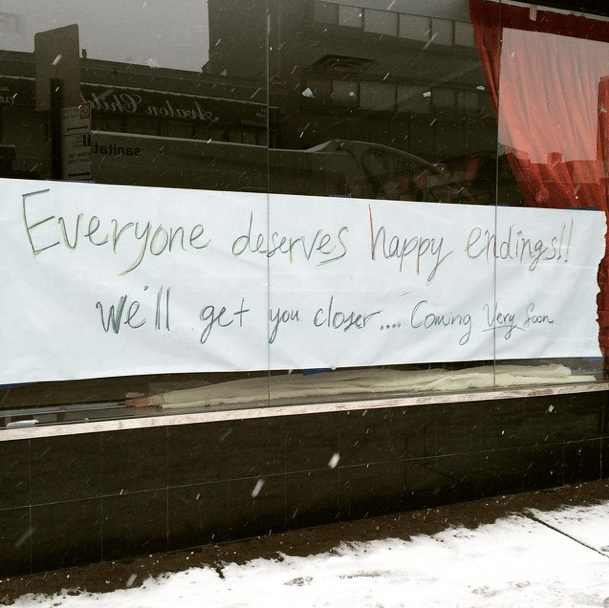 Everyone deserves happy endings!!
We'll get you closer.... Coming Very Soon
Avalon
sanitat